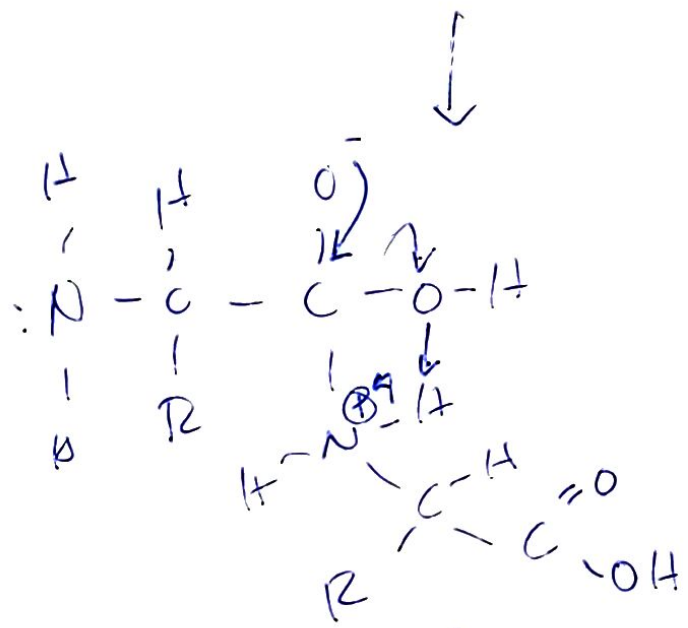 H H O⁻
:N - C - C - O - H
H R ⊕ H
H - N - H
C O
R C OH